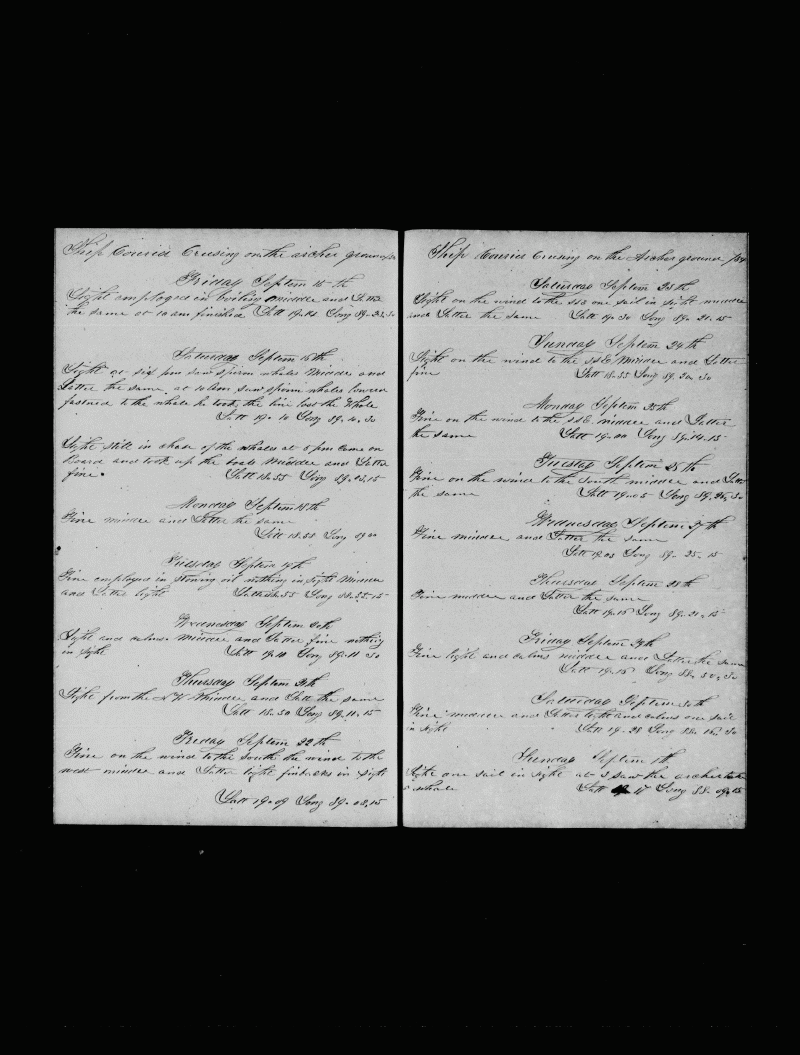 Ship Courier Cruising on the archer ground
Friday Septem 15th
Light employed in boiling middle and Latter
the same at 10 am finished Latt 19-14 Long 89-22-30
Saturday Septem 16th
Light at six pm saw sperm whales Middle and
Latter the same at 10 am saw sperm whales lowered
fastned to the whale he took the line lost the Whale
Latt 19-10 Long 89-10-30
Light still in chase of the whales at 6 pm came on
Board and took up the boats Middle and Latter
fine Latt 18-55 Long 89-03-15
Monday Septem 18th
Fine middle and Latter the same
Latt 18-58 Long 89-00
Tuesday Septem 19th
Fine employed in stowing oil nothing in sight Middle
and Latter light Latt 18-55 Long 88-55-15
Wednesday Septem 20th
Light and calms Middle and Latter fine nothing
in sight Latt 19-10 Long 89-11-30
Thursday Septem 21th
Light from the Middle and Latt the same
Latt 18-50 Long 89-11-15
Friday Septem 22th
Fine on the wind to the South the wind to the
west middle and Latter light finbacks in sight
Latt 19-09 Long 89-08-15
Ship Courier Cruising on the Archer ground
Saturday Septem 23th
Light on the wind to the one sail in sight middle
and Latter the same Latt 19-30 Long 89-21-15
Sunday Septem 24th
Light on the wind to the SSE Middle and Latter
fine Latt 18-55 Long 89-20-30
Monday Septem 25th
Fine on the wind to the SSE middle and Latter
the same Latt 19-00 Long 89-14-15
Tuesday Septem 25th
Fine on the wind to the South middle and Latter
the same Latt 19-05 Long 89-24-30
Wednesday Septem 27th
Fine middle and Latter the same
Latt 19-03 Long 89-25-15
Thursday Septem 28th
Fine middle and Latter the same
Latt 19-16 Long 89-21-15
Friday Septem 29th
Fine light and calms middle and Latter the same
Latt 19-16 Long 88-50-30
Saturday Septem 30th
Fine middle and Latter light and calms one sail
in sight Latt 19-28 Long 88-16-30
Sunday Septem 1th
Light one sail in sight at 5 saw the archer take
a whale Latt 17 Long 88-09-15